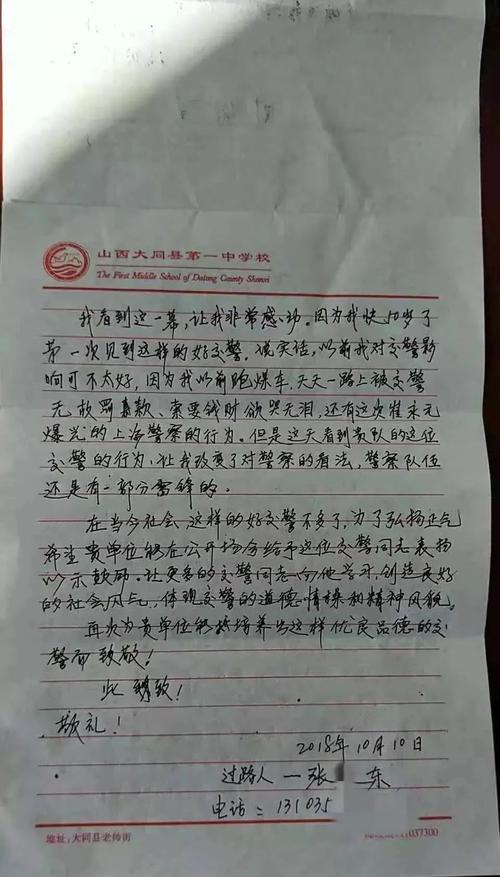 山西大同县第一中学校
The First Middle School of Datong County Shanxi
我看到这一幕,让我非常感动。因为我快50岁了
第一次见到这样的好交警。说实话,以前我对交警影
响可不太好,因为我以前跑煤车,天天一路上被交警
无故罚款、索要钱财欲哭无泪,还有这次崔永元
爆光的上海警察的行为。但是这天看到贵队的这位
交警的行为,让我改变了对警察的看法,警察队伍
还是有一部分雷锋的。
在当今社会,这样的好交警不多了,为了弘扬正气
希望贵单位能在公开场合给予这位交警同志表扬
以示鼓励。让更多的交警同志向他学习,创造良好
的社会风气,体现交警的道德情操和精神风貌。
再次为贵单位能培养出这样优良品德的交
警而致敬!
此致!
敬礼!
2018年10月10日
过路人 一张 东
电话:131035
地址:大同县老帅街
037300